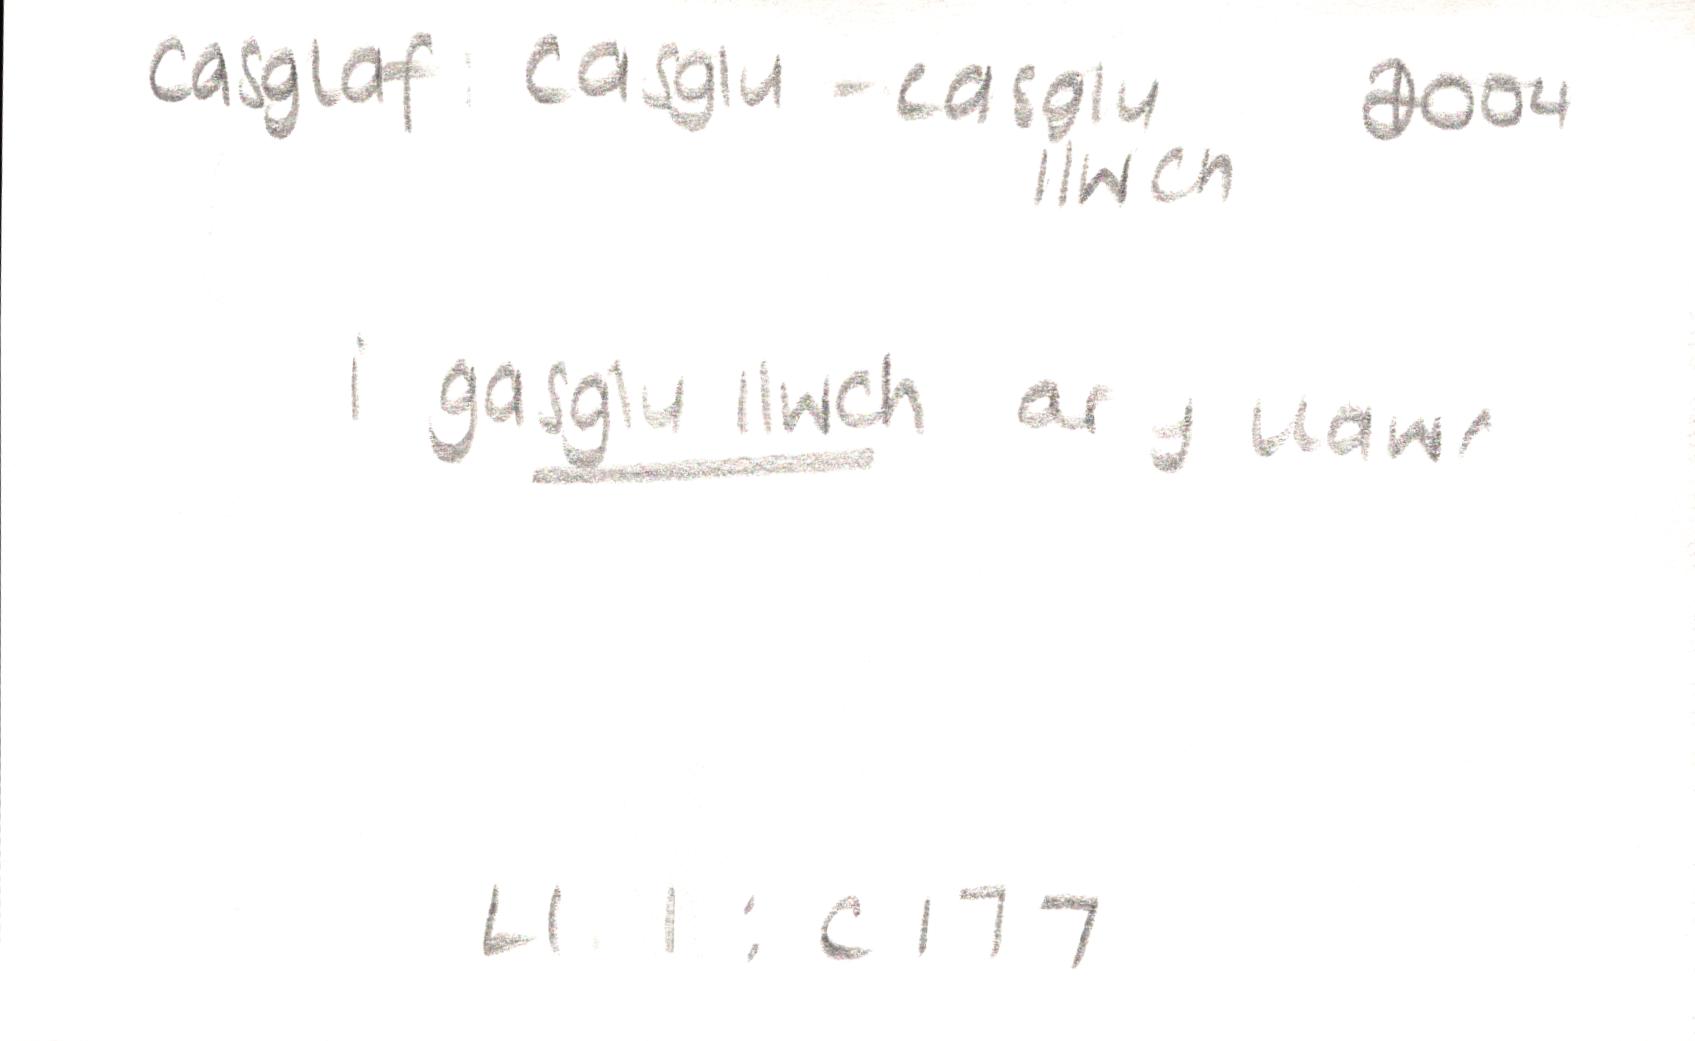 casglaf: casglu - casglu 2004
llwch
i gasglu llwch ar y llawr
Ll. 1 : C177